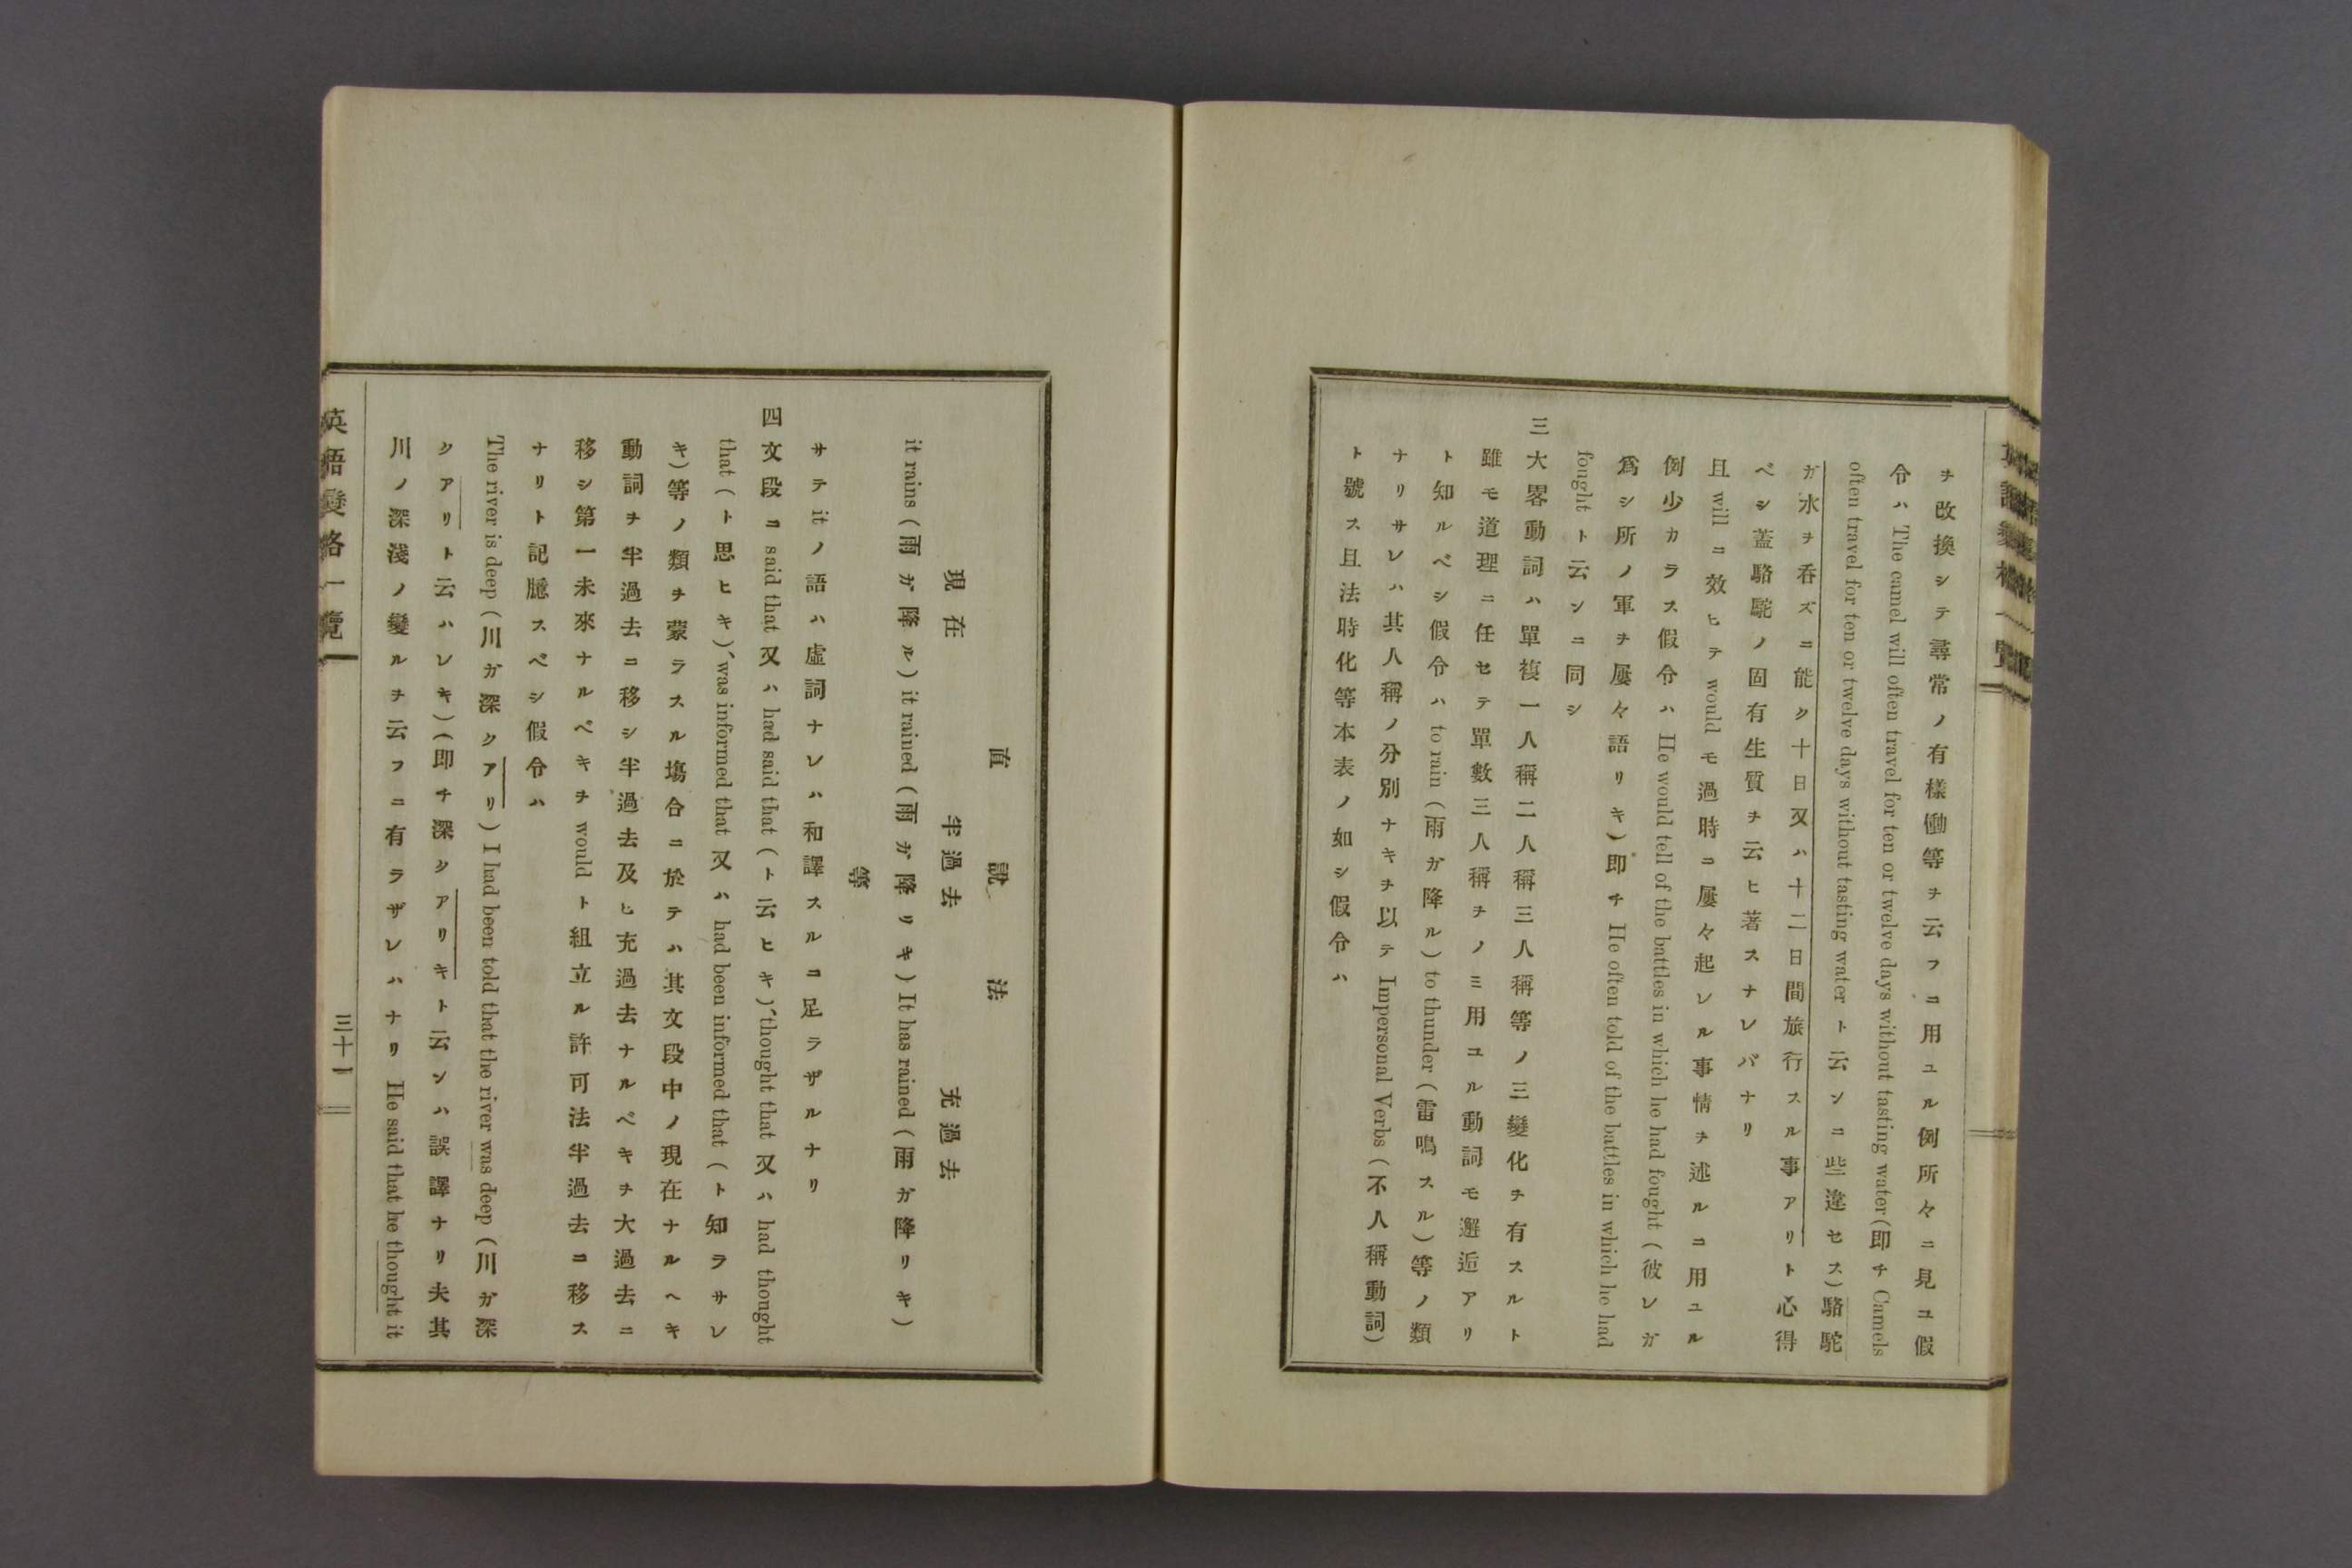 ヲ改換シテ尋常ノ有樣働等ヲ云フヿ用ユル例所々ニ見ユ假
令ハ The camel will often travel for ten or twelve days without tasting water (即チ Camels
often travel for ten or twelve days without tasting water ト云ンニ些違セス) 駱駝
ガ水ヲ呑ズニ能ク十日又ハ十二日間旅行スル事アリト心得
ベシ蓋駱駝ノ固有生質ヲ云ヒ著スナレバナリ
且 will ニ效ヒテ would モ過時ニ屢々起レル事情ヲ述ルニ用ユル
例少カラス假令ハ He would tell of the battles in which he had fought (彼レガ
爲シ所ノ軍ヲ屢々語リキ) 即チ He often told of the battles in which he had
fought ト云ンニ同シ
三 大畧動詞ハ單複一人稱二人稱三人稱等ノ三變化ヲ有スルト
雖モ道理ニ任セテ單數三人稱ヲノミ用ユル動詞モ邂逅アリ
ト知ルベシ假令ハ to rain (雨ガ降ル) to thunder (雷鳴スル) 等ノ類
ナリサレハ其人稱ノ分別ナキヲ以テ Impersonal Verbs (不人稱動詞)
ト號ス且法時化等本表ノ如シ假令ハ
直說法
現在 半過去 充過去
it rains (雨ガ降ル) it rained (雨ガ降リキ) It has rained (雨ガ降リキ)
等
サテ it ノ語ハ虛詞ナレハ和譯スルヿ足ラザルナリ
四 文段ヿ said that 又ハ had said that (ト云ヒキ)、thought that 又ハ had thought
that (ト思ヒキ)、was informed that 又ハ had been informed that (ト知ラサレ
キ) 等ノ類ヲ蒙ラスル塲合ニ於テハ其文段中ノ現在ナルヘキ
動詞ヲ半過去ニ移シ半過去及ヒ充過去ナルベキヲ大過去ニ
移シ第一未來ナルベキヲ would ト組立ル許可法半過去ヿ移ス
ナリト記臆スベシ假令ハ
The river is deep (川ガ深クアリ) I had been told that the river was deep (川ガ深
クアリト云ハレキ) (即チ深クアリキト云ンハ誤譯ナリ夫其
川ノ深淺ノ變ルヲ云フニ有ラザレハナリ He said that he thought it
英語變格一覽
三十一